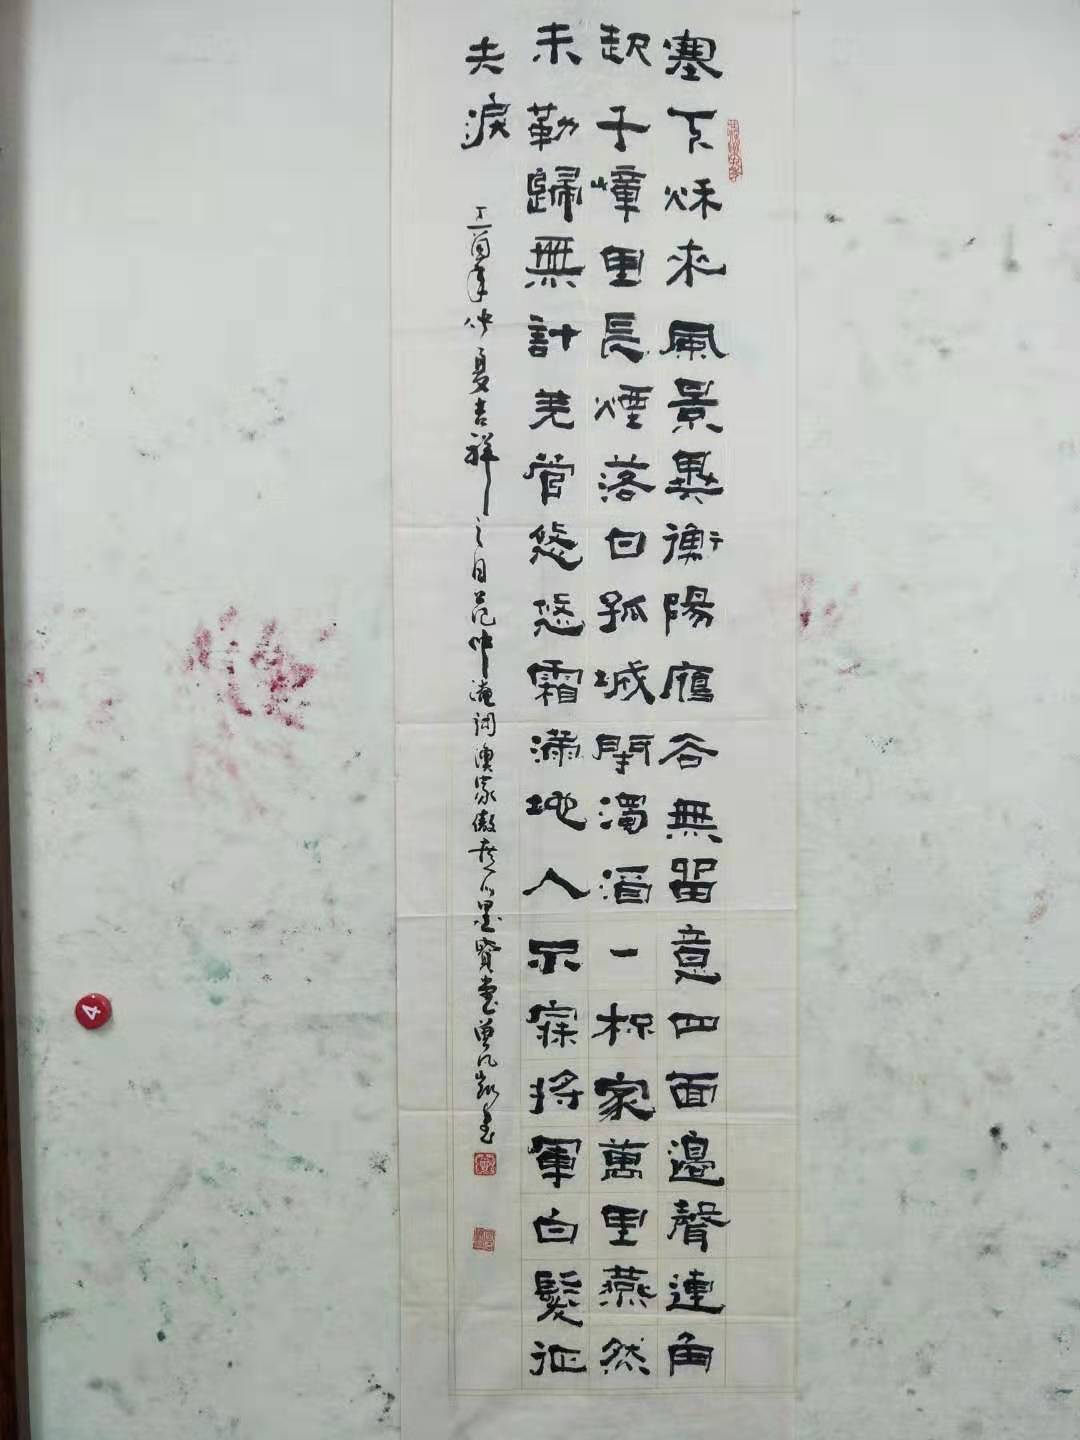 塞下秋來風景異衡陽雁去無留意四面邊聲連角
起千嶂里長煙落日孤城閉濁酒一杯家萬里燕然
未勒歸無計羌管悠悠霜滿地人不寐將軍白髮征
夫淚
丁酉年仲夏吉祥之日范仲淹詞漁家傲墨寶堂曾凡凱書
4